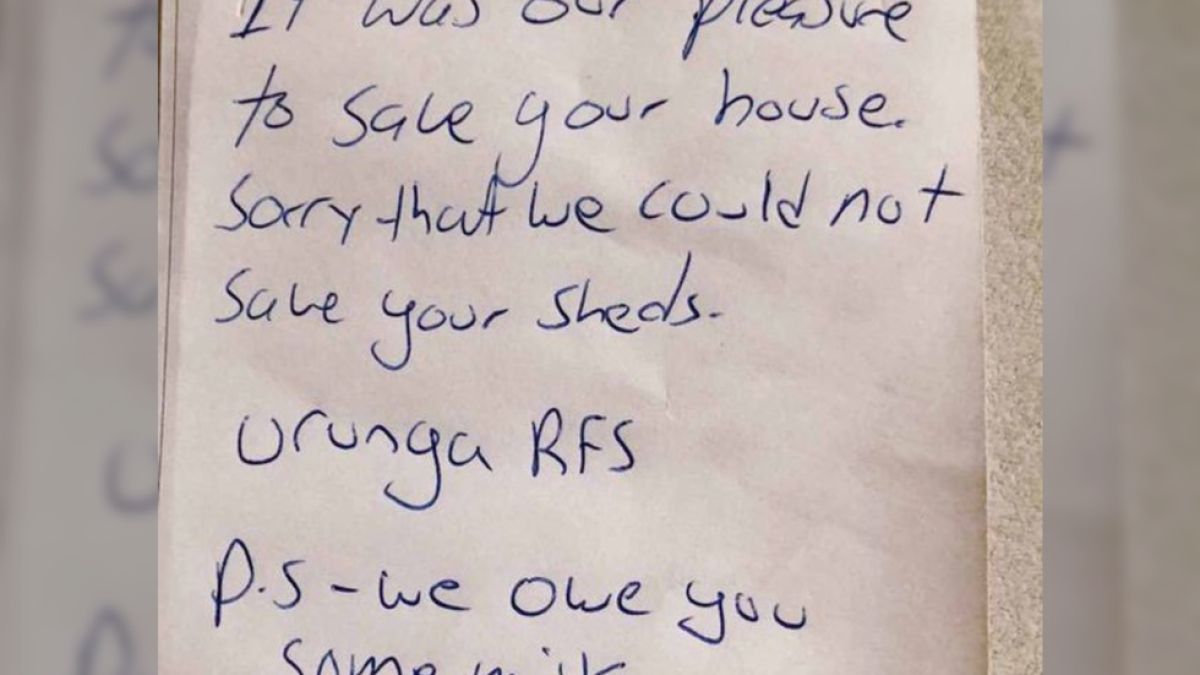 It was our pleasure
to save your house.
Sorry that we could not
save your sheds.
Urunga RFS
P.S - we owe you
some milk